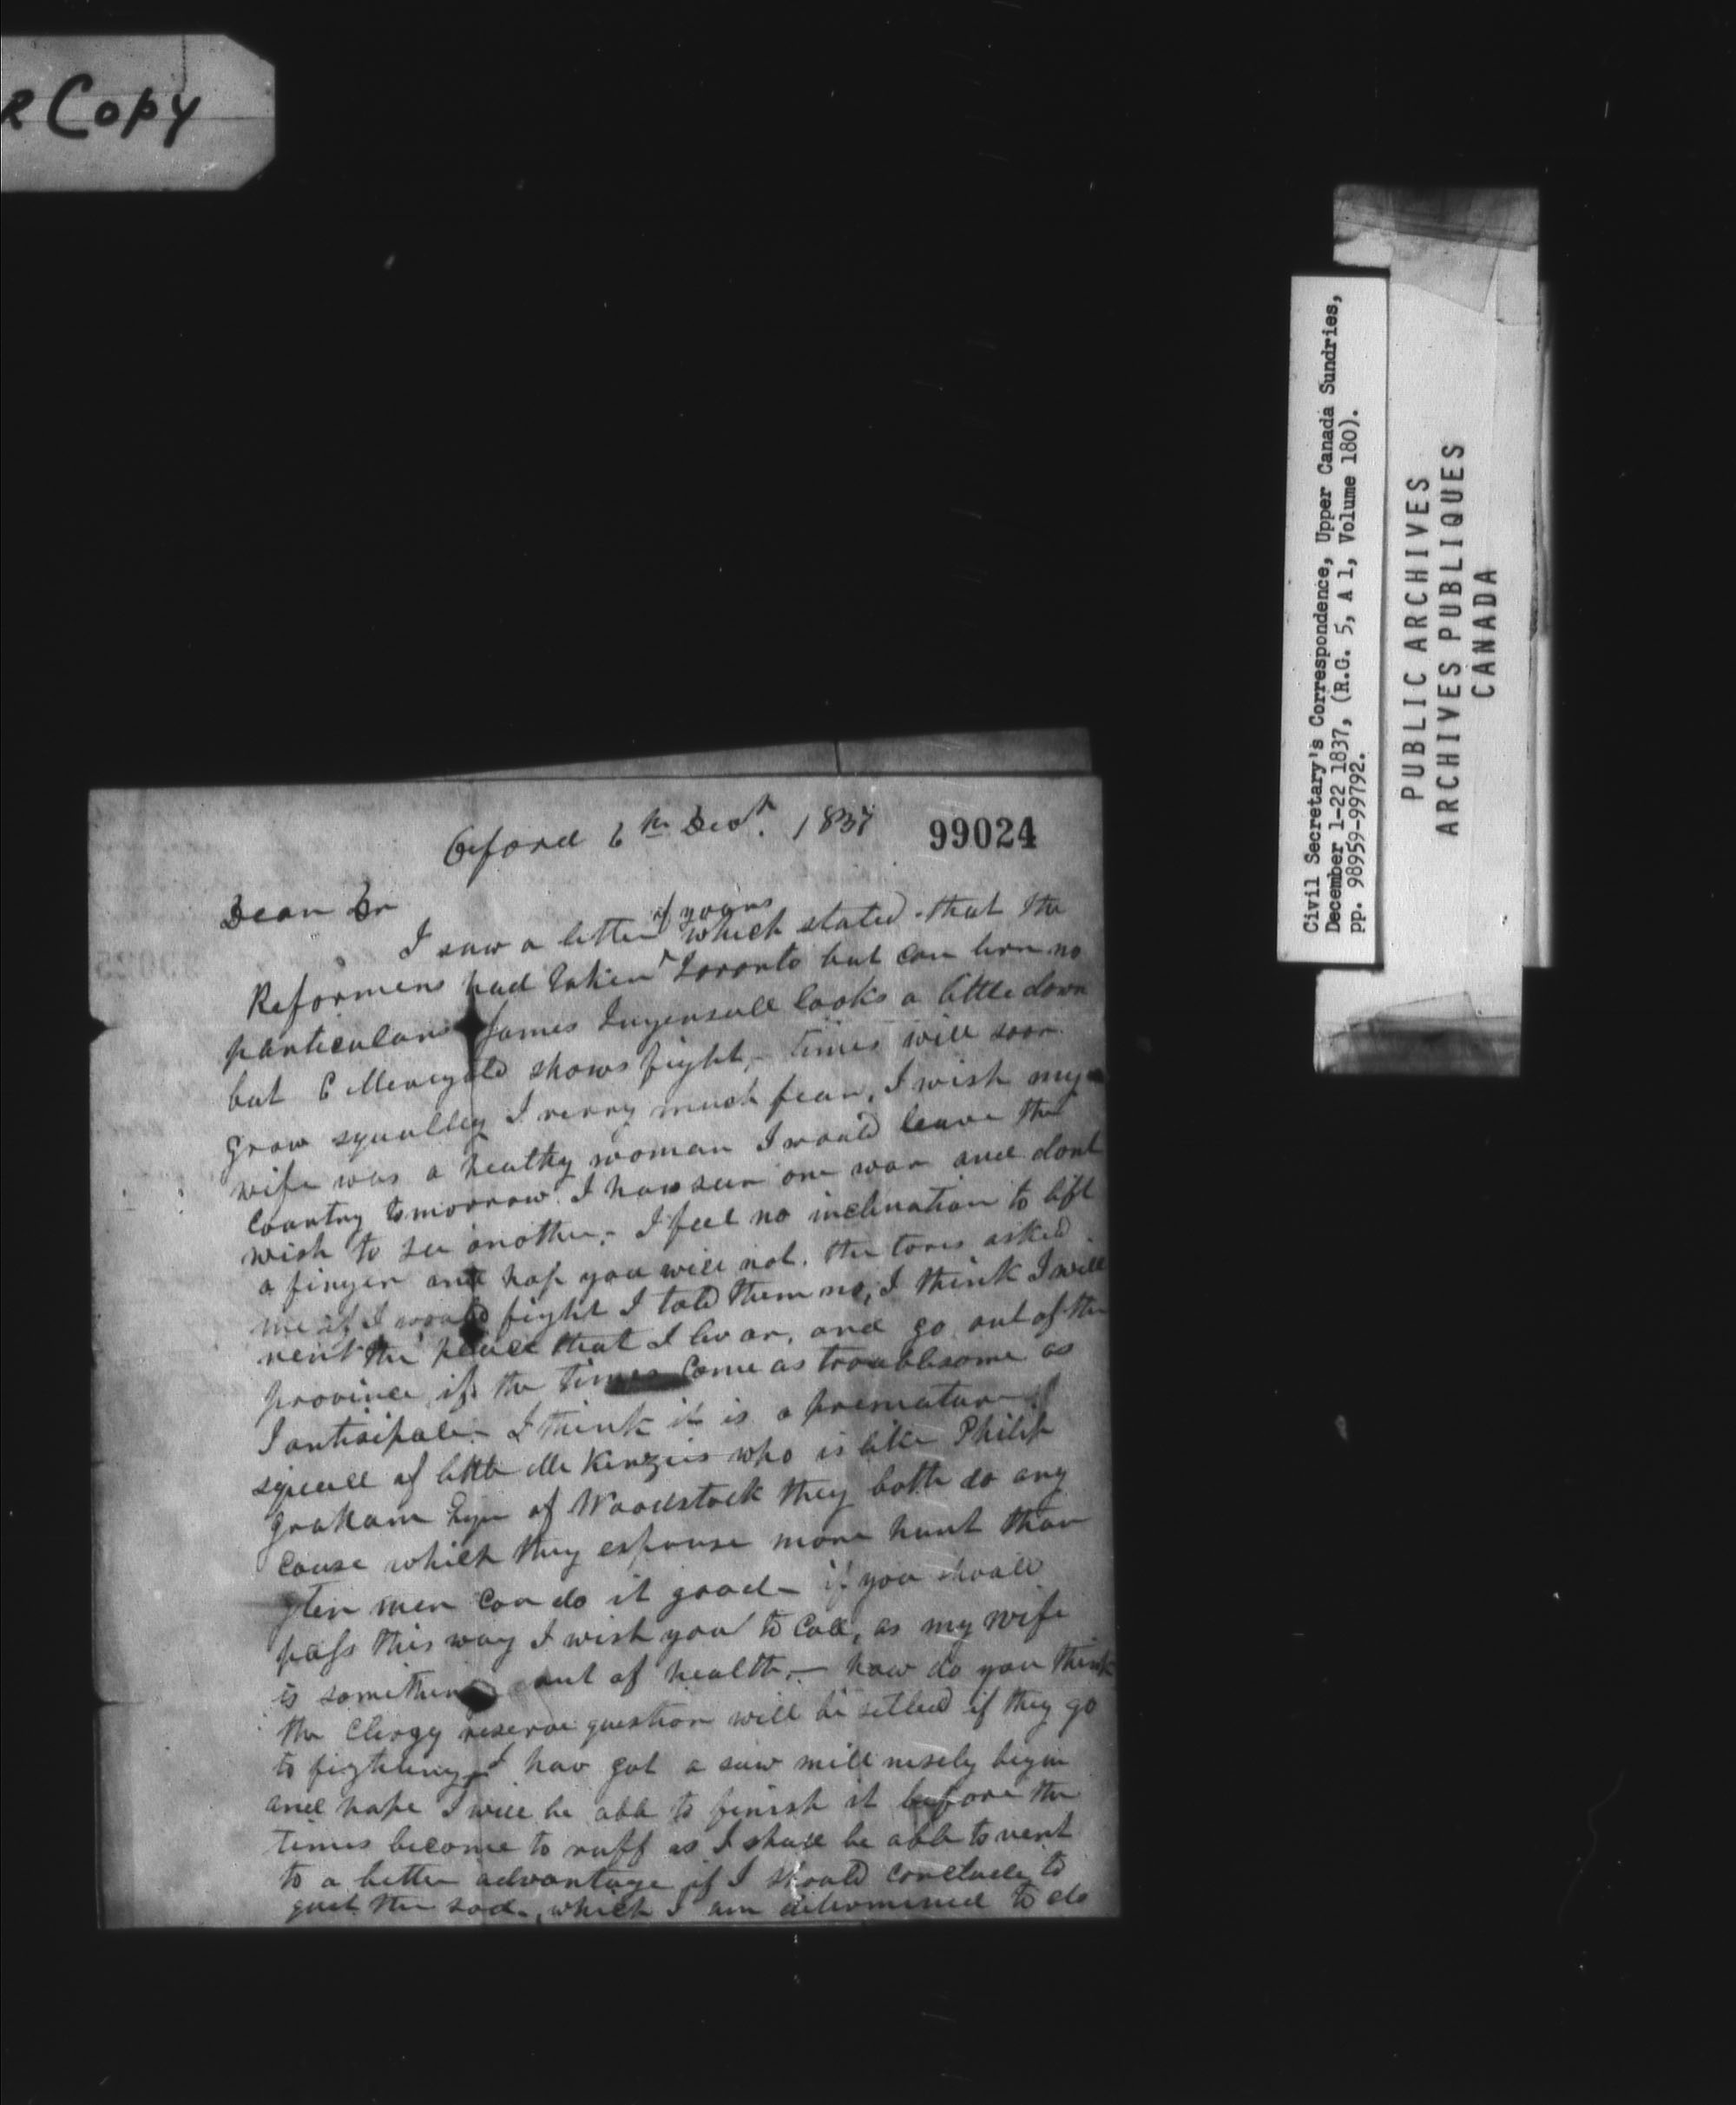 R Copy
Civil Secretary's Correspondence, Upper Canada Sundries,
December 1-22 1837, (R.G. 5, A 1, Volume 180).
pp. 98959-99792.
PUBLIC ARCHIVES
ARCHIVES PUBLIQUES
CANADA
99024
Oxford 6th Decr. 1837
Dear Dr
I saw a letter of yours which stated that the
Reformers had taken Toronto but can lern no
particulars James Ingersull looks a little down
but C Merrygold shows fight, times will soon
grow squally I verry much fear, I wish my
wife was a healthy woman I would leave the
Country tomorrow I hav seen one war and dont
wish to see another,- I feel no inclination to lift
a finger and hope you will not. the tories asked
me if I would fight I told them no, I think I will
rent the place that I liv on, and go out of the
province if the times Come as troublesome as
I anticipate- I think it is a premature
squall of little McKenzies who is like Philip
Graham Esqr of Woodstock they both do any
Cause which they espouse more hurt than
ten men Can do it good- if you should
pass this way I wish you to Call, as my wife
is something out of health,- how do you think
the Clergy reserve question will be setled if they go
to fighting, I hav got a saw mill nisely begun
and hope I will be able to finish it before the
times become to ruff as I shall be able to rent
to a better advantage if I should conclude to
quit the sod, which I am determined to do